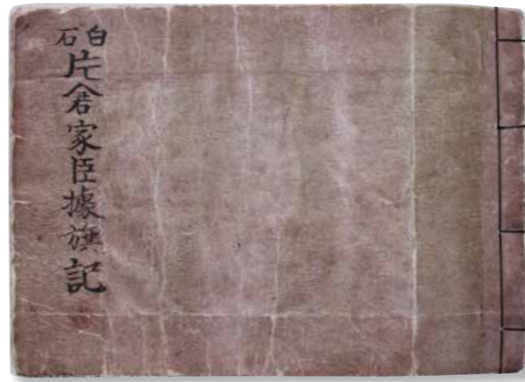 白石
片倉家臣據旗記